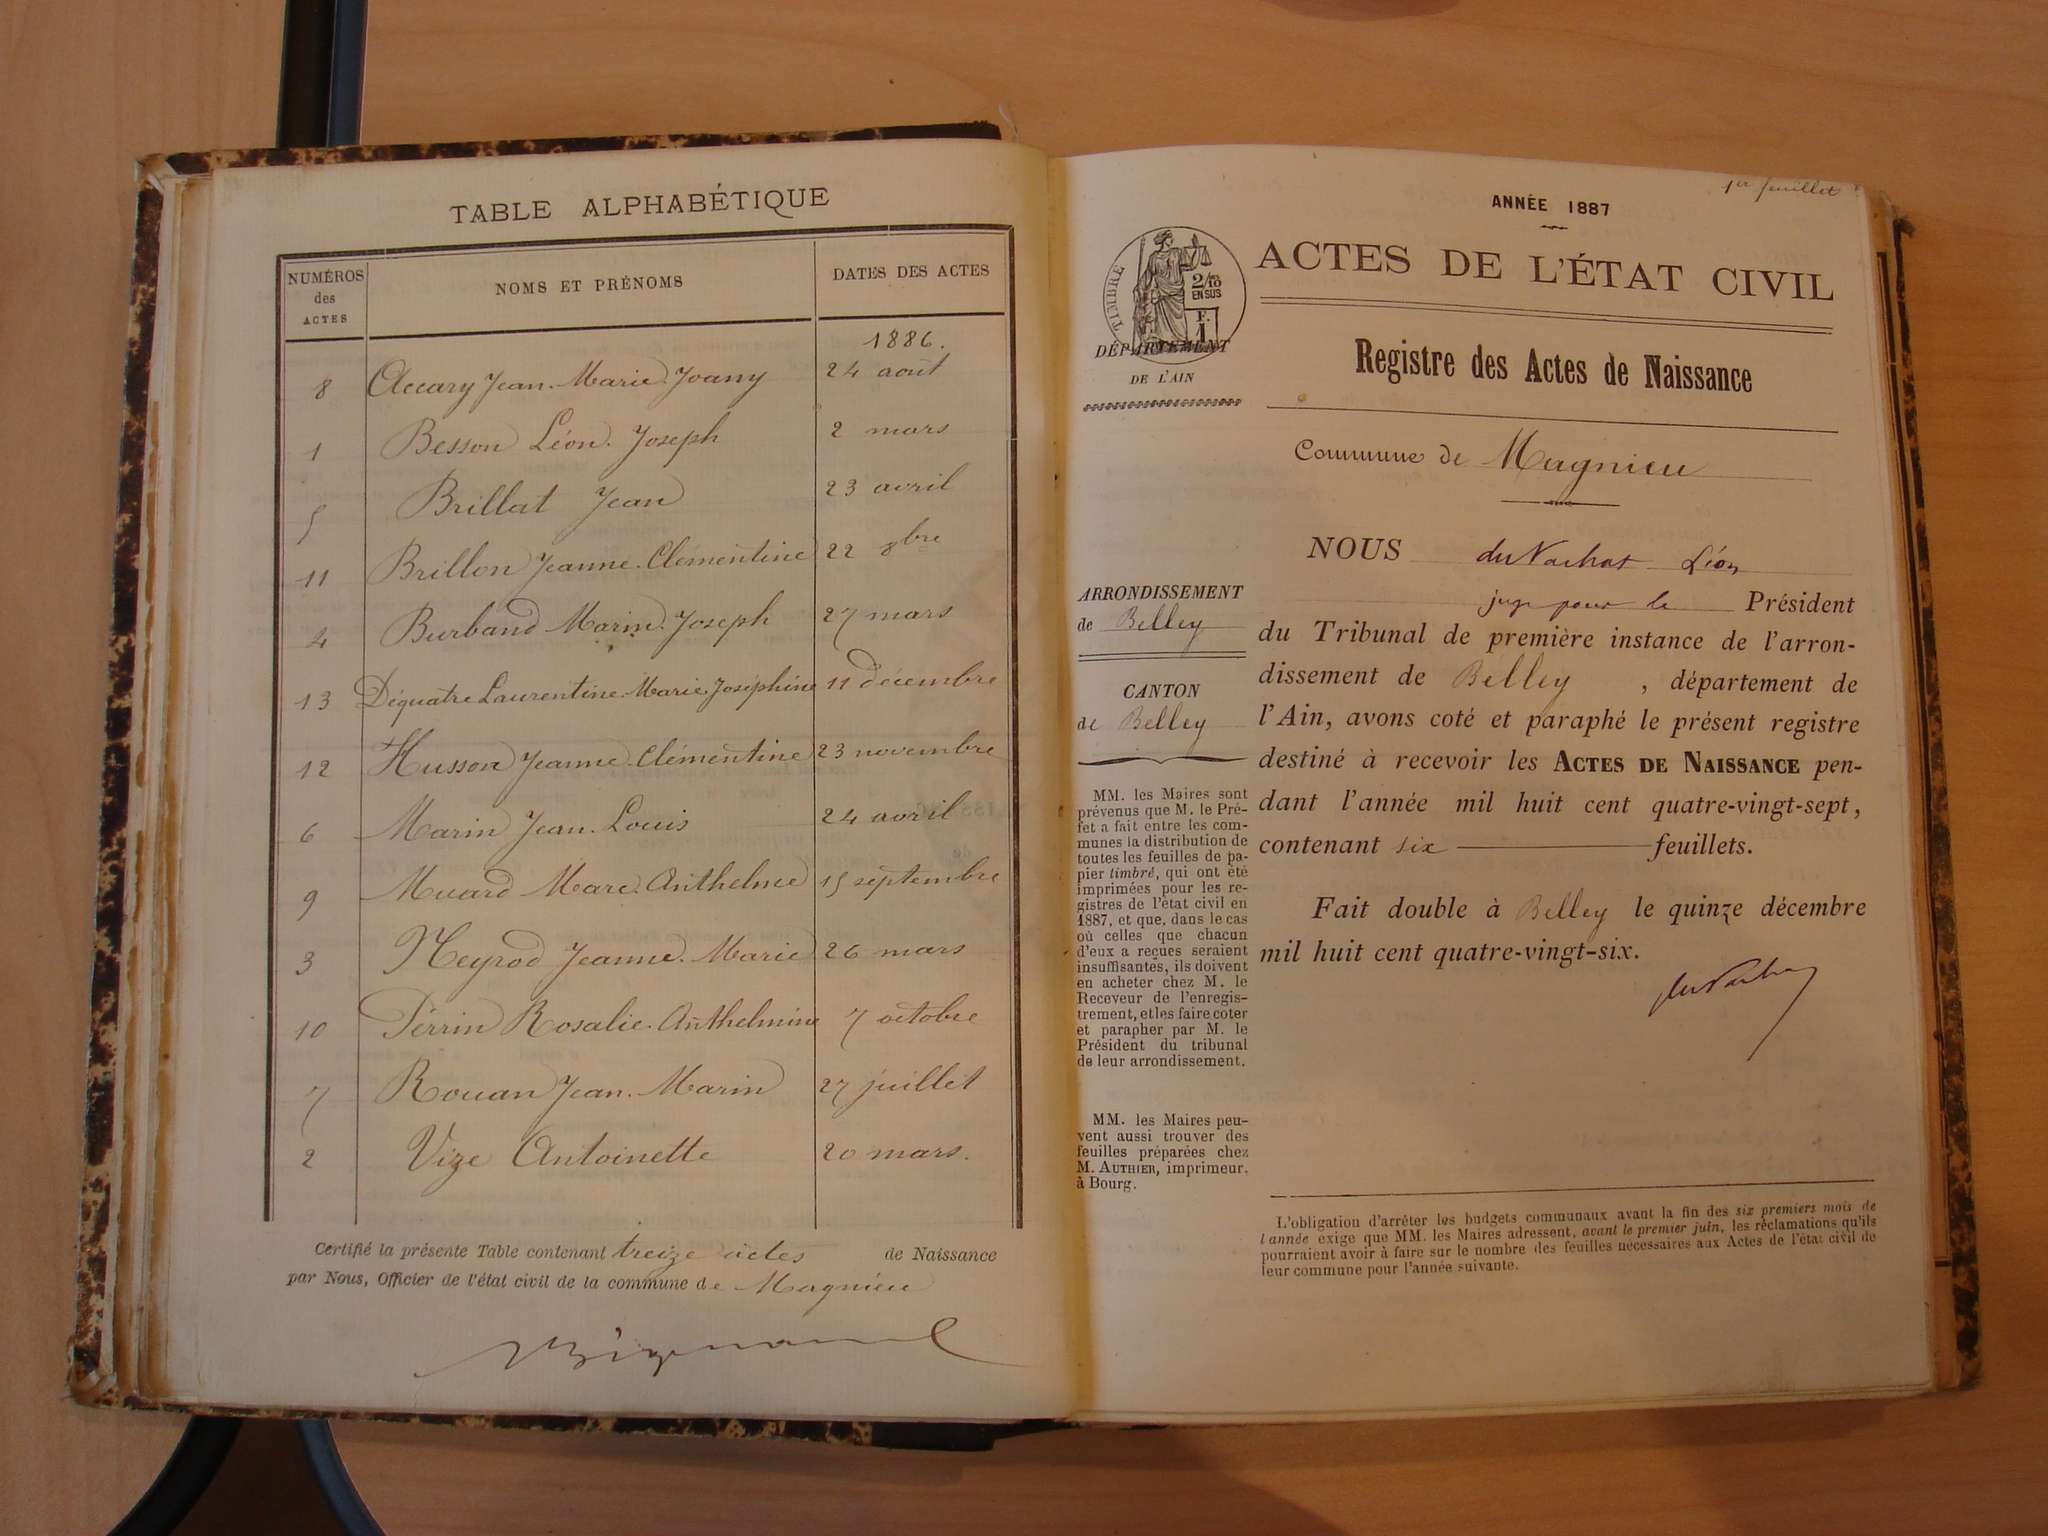 TABLE ALPHABÉTIQUE
NUMÉROS
des
ACTES
NOMS ET PRÉNOMS
DATES DES ACTES
1886.
8 Accary Jean. Marie. Joany 24 août
1 Besson Léon. Joseph 2 mars
5 Brillat Jean 23 avril
11 Brillon Jeanne. Clémentine 22 8bre
4 Burband Marin. Joseph 27 mars
13 Déquatre Laurentine. Marie. Joséphine 11 décembre
12 Husson Jeanne. Clémentine 23 novembre
6 Marin Jean. Louis 24 avril
9 Muard Marc. Anthelme 15 septembre
3 Neyrod Jeanne. Marie 26 mars
10 Perrin Rosalie. Anthelmine 7 octobre
7 Rouan Jean. Marin 27 juillet
2 Vize Antoinette 20 mars.
Certifié la présente Table contenant treize actes de Naissance
par Nous, Officier de l'état civil de la commune de Magnieu
1er feuillet
ANNÉE 1887
TIMBRE
2/10
EN SUS
F.
1
DÉPARTEMENT
DE L'AIN
ACTES DE L'ÉTAT CIVIL
Registre des Actes de Naissance
Commune de Magnieu
ARRONDISSEMENT
de Belley
CANTON
de Belley
MM. les Maires sont
prévenus que M. le Pré-
fet a fait entre les com-
munes la distribution de
toutes les feuilles de pa-
pier timbré, qui ont été
imprimées pour les re-
gistres de l'état civil en
1887, et que, dans le cas
où celles que chacun
d'eux a reçues seraient
insuffisantes, ils doivent
en acheter chez M. le
Receveur de l'enregis-
trement, et les faire coter
et parapher par M. le
Président du tribunal
de leur arrondissement.
MM. les Maires peu-
vent aussi trouver des
feuilles préparées chez
M. AUTHIER, imprimeur,
à Bourg.
NOUS du Vachat Léon
juge pour le Président
du Tribunal de première instance de l'arron-
dissement de Belley , département de
l'Ain, avons coté et paraphé le présent registre
destiné à recevoir les ACTES DE NAISSANCE pen-
dant l'année mil huit cent quatre-vingt-sept,
contenant six feuillets.
Fait double à Belley le quinze décembre
mil huit cent quatre-vingt-six.
du Vachat
L'obligation d'arrêter les budgets communaux avant la fin des six premiers mois de
l'année exige que MM. les Maires adressent, avant le premier juin, les réclamations qu'ils
pourraient avoir à faire sur le nombre des feuilles nécessaires aux Actes de l'état civil de
leur commune pour l'année suivante.